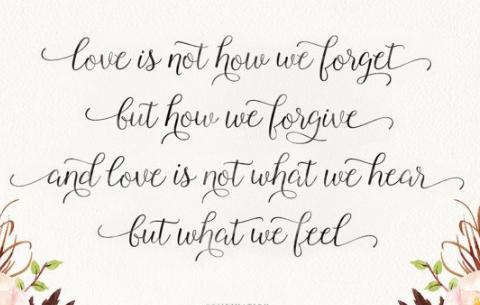 love is not how we forget
but how we forgive
and love is not what we hear
but what we feel